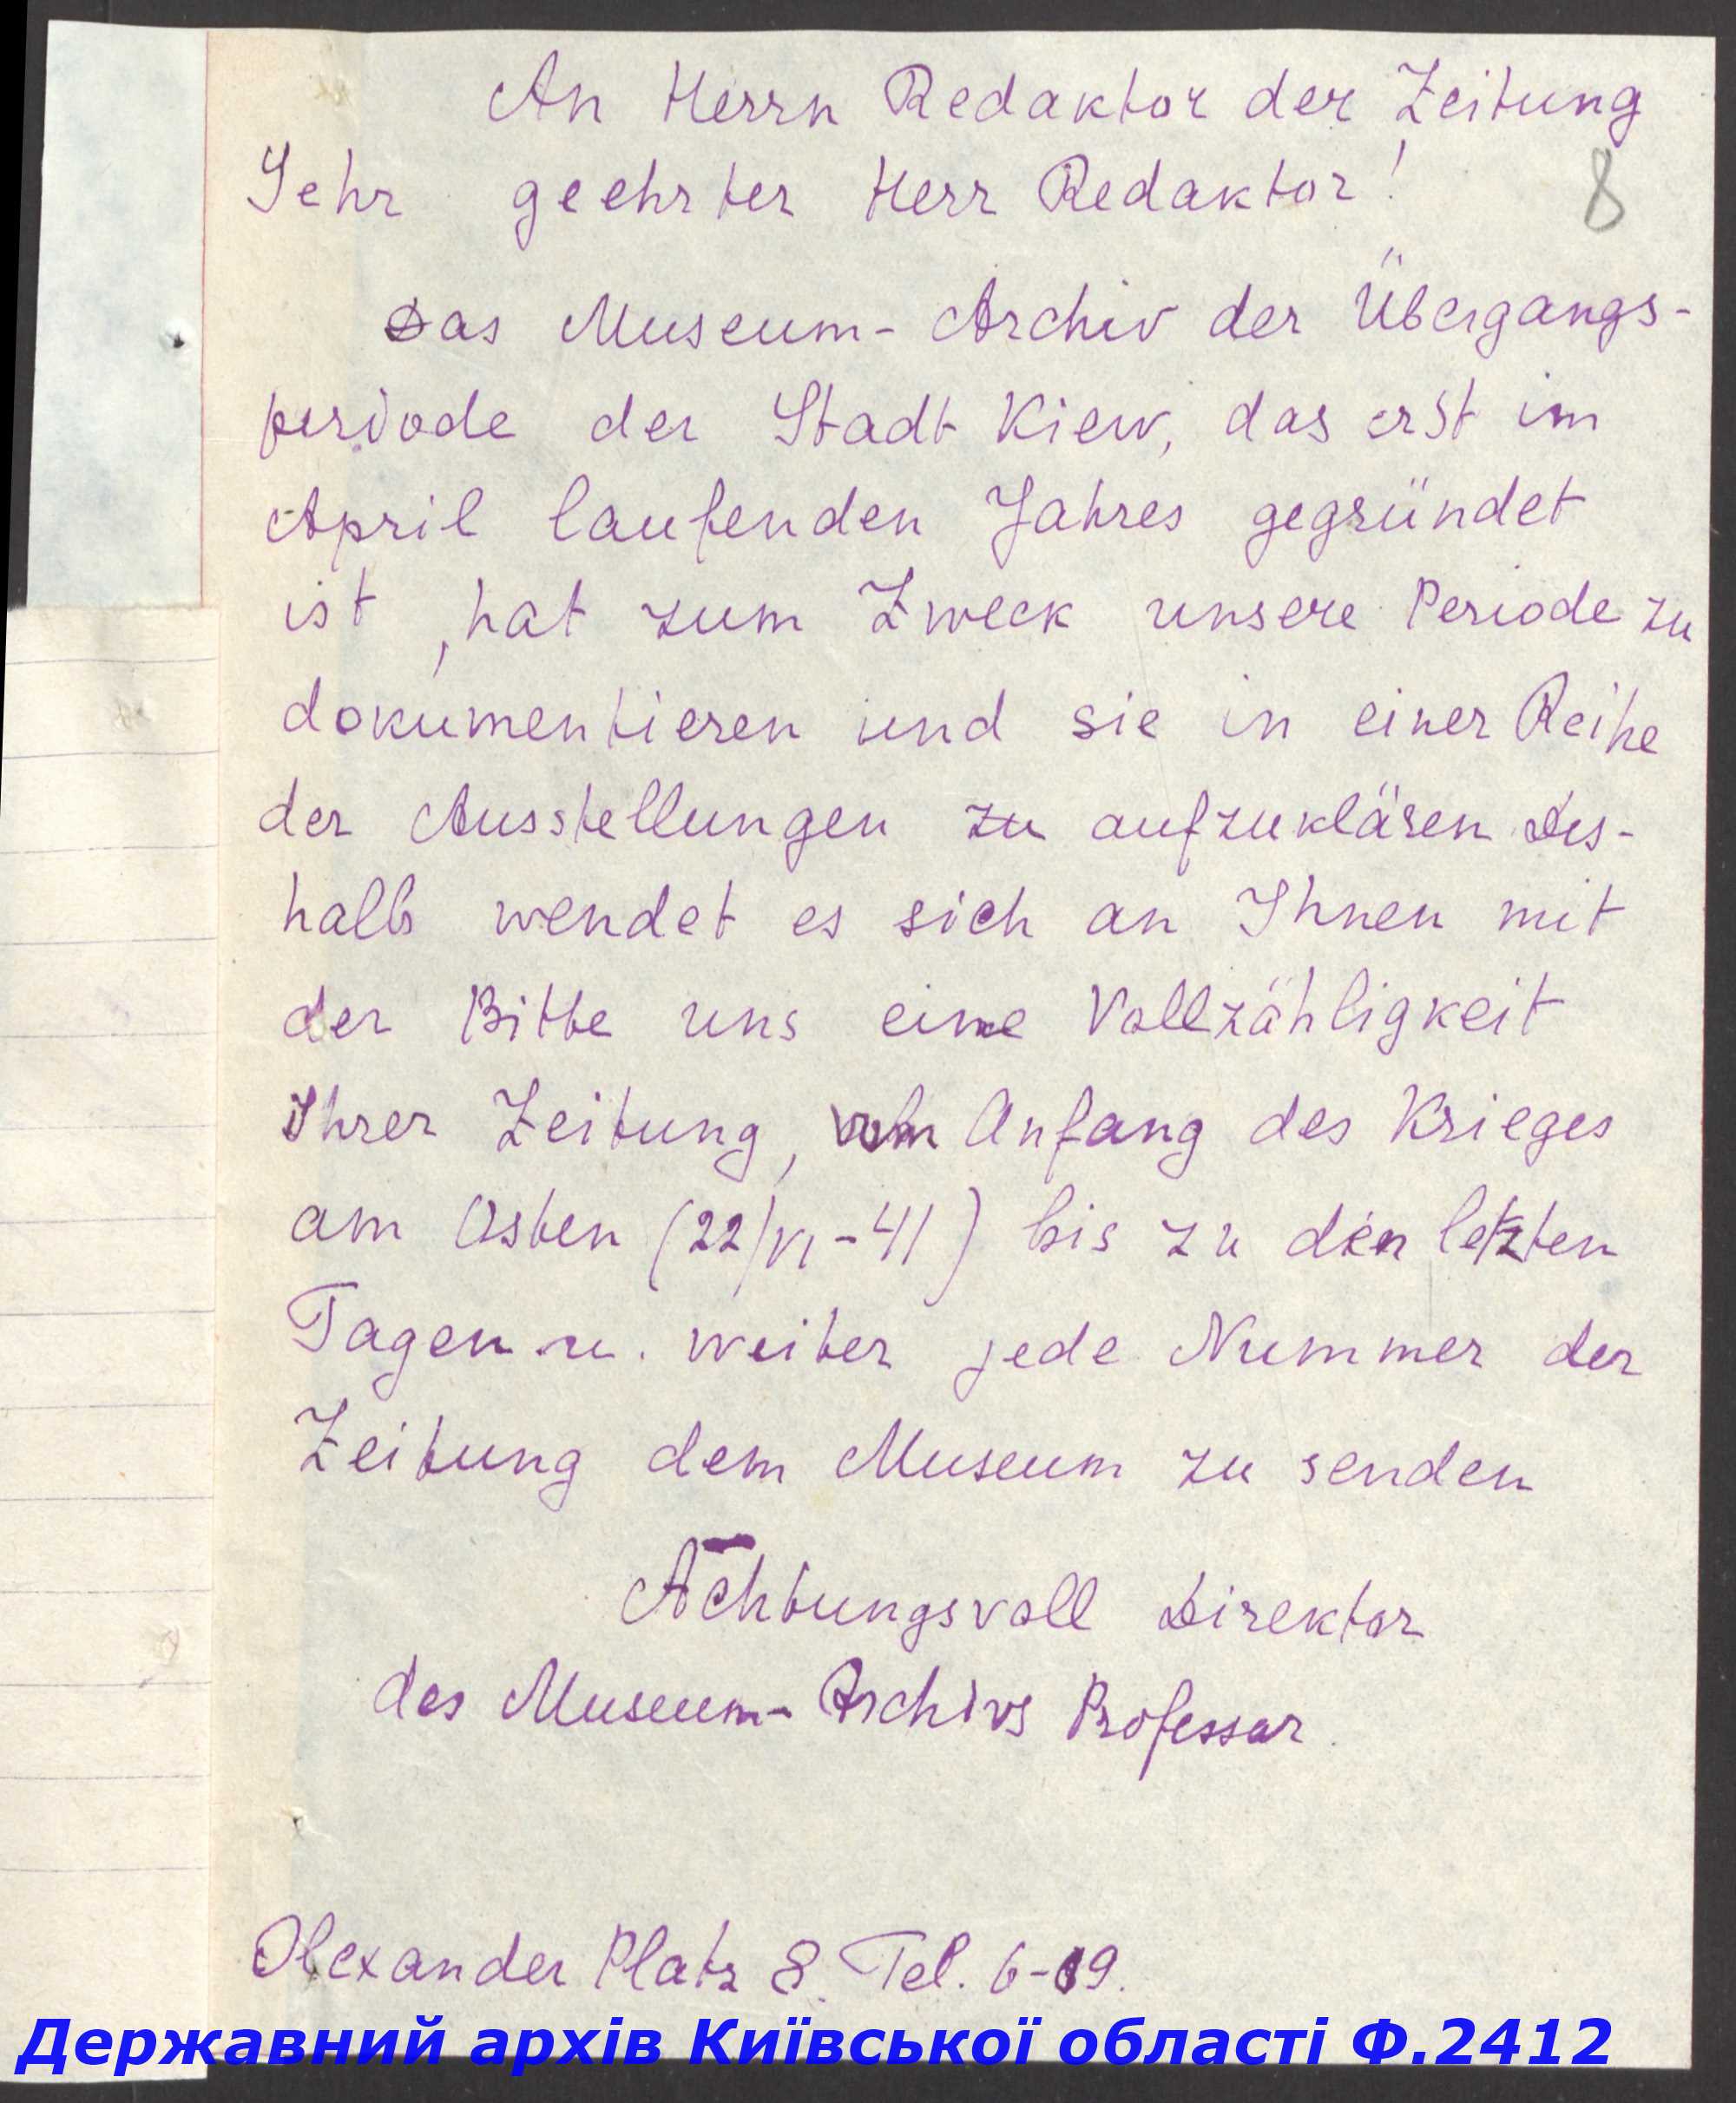 An Herrn Redaktor der Zeitung
Sehr geehrter Herr Redaktor!
8
Das Museum-Archiv der Übergangs-
periode der Stadt Kiew, das erst im
April laufenden Jahres gegründet
ist, hat zum Zweck unsere Periode zu
dokumentieren und sie in einer Reihe
der Ausstellungen zu aufzuklären Des-
halb wendet es sich an Ihnen mit
der Bitte uns eine Vollzähligkeit
Ihrer Zeitung, vom Anfang des Krieges
am Osten (22/VI-41) bis zu den letzten
Tagen u. weiter jede Nummer der
Zeitung dem Museum zu senden
Achtungsvoll Direktor
des Museum-Archivs Professor
Olexander Platz 8. Tel. 6-19.
Державний архів Київської області Ф.2412